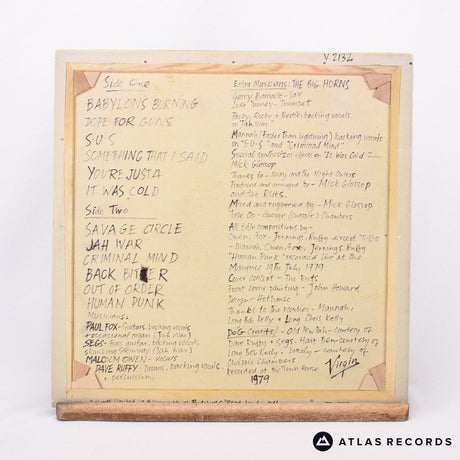 V2132
Side One
BABYLONS BURNING
DOPE FOR GUNS
S·U·S
SOMETHING THAT I SAID
YOU'RE JUSTA
IT WAS COLD
Side Two
SAVAGE CIRCLE
JAH WAR
CRIMINAL MIND
BACK BITER
OUT OF ORDER
HUMAN PUNK
Musicians:
PAUL FOX - Guitars, backing vocals
+ occasional organ (Jah War)
SEGS - Bass guitar, backing vocals
Skanking Steinway (Jah War)
MALCOLM OWEN - VOCALS
DAVE RUFFY - Drums, backing vocals
+ percussion.
Extra Musicians: THE BIG HORNS
Gary Barnacle - Sax
Luke Tunney - Trumpet
Rocky + Bertie - backing vocals
on "Jah War"
Mannah (Faster than lightning) backing vocals
on "S·U·S" and "Criminal Mind"
Special synthesizer effects on It Was Cold -
Mick Glossop
Thanks to - Andy and the Night Owlers
Produced and arranged by - Mick Glossop
and The Ruts.
Mixed and engineered by - Mick Glossop
Tape Op - George (Chessie) Chambers
All title compositions by -
Owen, Fox, Jennings, Ruffy except "S·U·S
- Mannah, Owen, Fox, Jennings, Ruffy
"Human Punk" recorded live at the
Marquee 19th July 1979
Cover concept - The Ruts
Front cover painting - John Howard
Design - Hothouse
Thanks to the roadies - Mannah,
Long Bob Kelly + Long Chris Kelly
DoG Credits: - Old - courtesy of
Dave Ruffy + Segs, Hait Ben - courtesy of
Long Bob Kelly - Lonely - courtesy of
Chessie Chambers
recorded at the Town House
1979
Virgin
ATLAS RECORDS